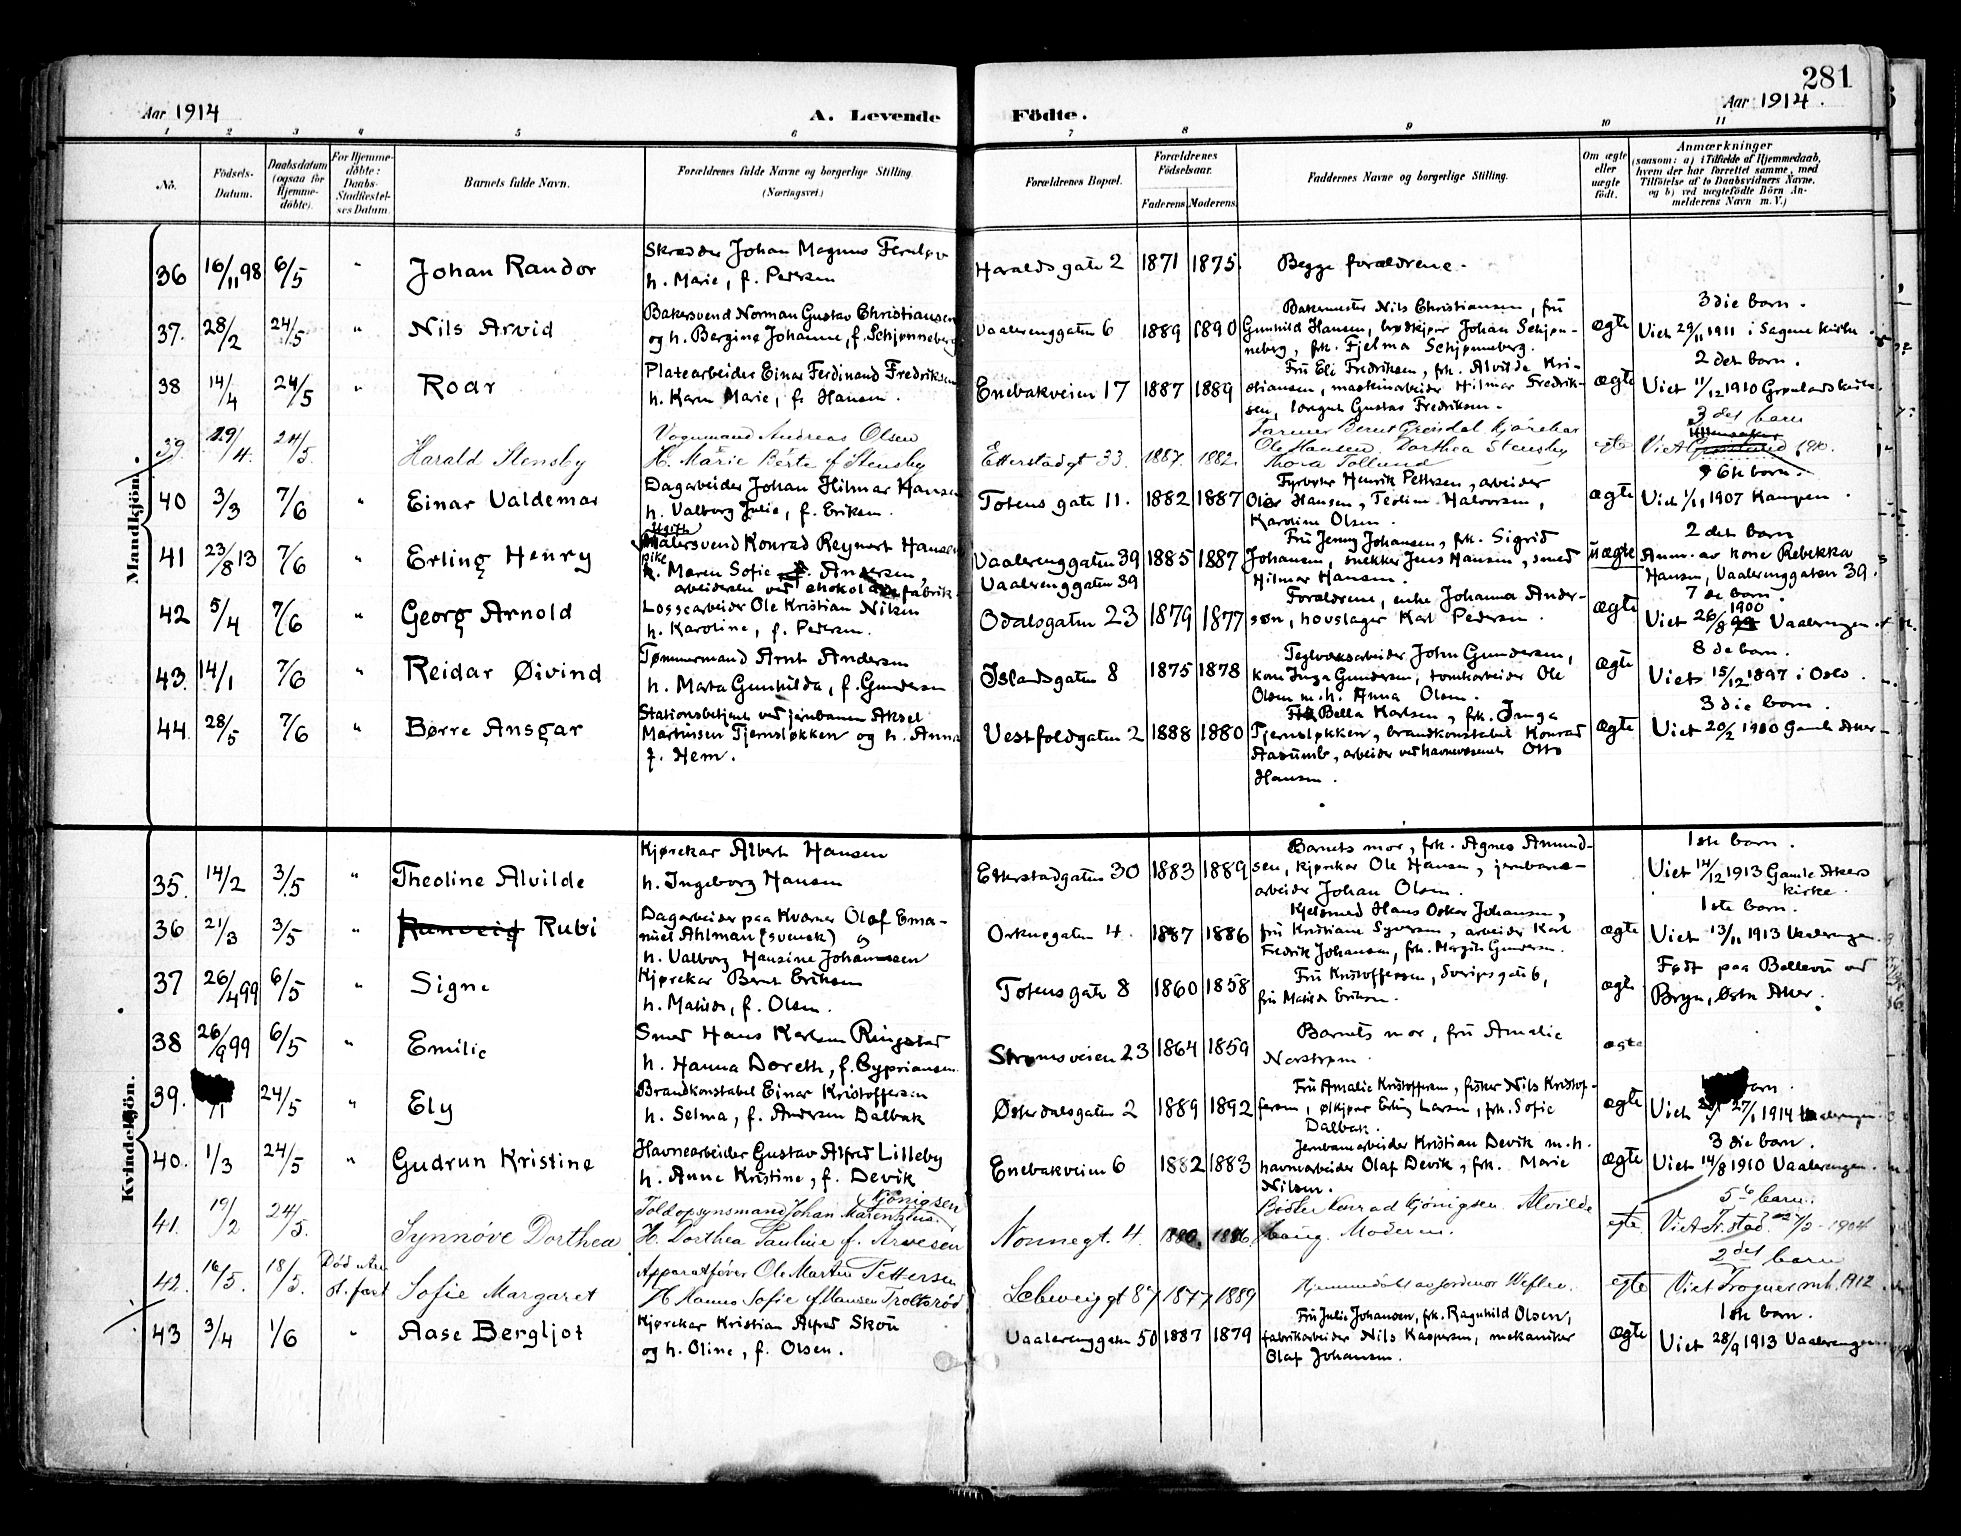 281
Aar 1914
A. Levende Födte.
Aar 1914.
1 2 3 4 5 6 7 8 9 10 11
No.
Födsels-Datum.
Daabsdatum (ogsaa for Hjemme-döbte).
For Hjemme-döbte: Daabs-Stadfæstel-ses Datum.
Barnets fulde Navn.
Forældrenes fulde Navne og borgerlige Stilling.
(Næringsvei.)
Forældrenes Bopæl.
Forældrenes Födselsaar.
Faderens. Moderens.
Faddernes Navne og borgerlige Stilling.
Om ægte eller uægte födt.
Anmærkninger
(saasom: a) i Tilfælde af Hjemmedaab,
hvem der har forrettet samme, med
Tilföielse af to Daabsvidners Navne,
og b) ved uægtefödte Börn An-
melderens Navn m. V.)
Mandkjön.
36 16/11 98 6/5 " Johan Randor
Skrædder Johan Magnus
h. Marie, f. Pedersen
Haraldsgate 2 1871 1875
Begge forældrene.
37. 28/2 24/5 " Nils Arvid
Bakersvend Norman Gustav Christiansen
og h. Bergine Johanne, f. Schjønneberg
Vaalerenggaten 6 1889 1890
Bakermester Nils Christiansen, fru
Gunhild Hansen, brødkjører Johan Schjøn-
neberg, frk. Fjelma Schjønneberg.
ægte
3 die barn.
Viet 29/11 1911 i Sagene kirke.
38 14/4 24/5 " Roar
Platearbeider Einar Ferdinand Fredriksen
h. Karen Marie, f. Hansen.
Enebakveien 17 1887 1889
Fru Eli Fredriksen, frk. Alvilde Kri-
stiansen, maskinarbeider Hilmar Fredrik-
sen, Gustav Fredriksen.
ægte
2 det barn.
Viet 11/12 1910 Grønlands kirke.
39. 29/4. 24/5. Harald Stensby
Vognmand Andreas Olsen
H. Marie Berte f. Stensby
Etterstadgt 33. 1887. 1882.
Farmer Bernt Grendal, Kjørekar
Ole Hansen. Dorthea Stensby
Thora Tollund
egte
3 det barn
Viet 1910.
40 3/3 7/6 " Einar Valdemar
Dagarbeider Johan Hilmar Hansen
h. Valborg Julie, f. Eriksen.
Totens gate 11. 1882 1887
Fyrbøter Henrik Pettersen, arbeider
Olar Hansen, Teoline Halvorsen,
Karoline Olsen.
ægte
6te barn.
Viet 1/11 1907 Kampen.
41 23/8 13 7/6 " Erling Henry
Ugift
Malersvend Konrad Reynert Hansen
pike
Maren Sofie Andersen,
arbeiderske ved chokoladefabrik.
Vaalerenggaten 39
Vaalerenggaten 39
1885 1887
Fru Jenny Johansen, frk. Sigrid
Johansen, snekker Jens Hansen, smed
Hilmar Hansen.
uægte
2 det barn
Anm. av kone Rebekka
Hansen, Vaalerenggaten 39.
42 5/4 7/6 " Georg Arnold
Lossearbeider Ole Kristian Nilsen
h. Karoline, f. Pedersen.
Odalsgaten 23 1879 1877
Forældrene, enke Johanna Ander-
søn, hovslager Karl Pedersen.
ægte
7 de barn.
Viet 26/8 1900 Vaalerengen.
43. 14/1 7/6 " Reidar Øivind
Tømmermand Arnt Andersen
h. Marta Gunhilda, f. Gundersen
Islandsgaten 8 1875 1878
Teglverksarbeider John Gundersen,
kone Inga Gundersen, tomtearbeider Ole
Olsen m. h. Anna Olsen.
ægte
8 de barn.
Viet 15/12 1897 i Oslo.
44. 28/5 7/6 " Børre Ansgar
Stationsbetjent ved jernbanen Aksel
Martinsen Tjernsløkken og h. Anna
f. Hem.
Vestfoldgaten 2 1888 1880
Bella Karlsen, frk. Inga
Tjernsløkken, brandkonstabel Konrad
Aasumb, arbeider ved havnevæsenet Otto
Hansen.
ægte
3 die barn.
Viet 20/2 1910 Gamle Aker
Kvindekjön.
35. 14/2 3/5 " Theoline Alvilde
Kjørekar Albert Hansen
h. Ingeborg Hansen
Etterstadgaten 30 1883 1889
Barnets mor, frk. Agnes Amund-
sen, kjørekar Ole Hansen, jernbane-
arbeider Johan Olsen.
1 ste barn.
Viet 14/12 1913 Gamle Akers
kirke.
36 21/3 3/5 " Ranveig Rubi
Dagarbeider paa Kværner Olaf Ema-
nuel Ahlman (svensk) og
h. Valborg Hansine Johannessen
Orknøgaten 4. 1887 1886
Kjelsmed Hans Oskar Johansen,
fru Kristiane Syversen, arbeider Karl
Fredrik Johansen, frk. Margit Gundersen.
ægte
1 ste barn.
Viet 13/11 1913 Vaalerengen.
37 26/4 99 6/5 " Signe
Kjørekar Bernt Eriksen
h. Matilde, f. Olsen.
Totensgate 8 1860 1858
Fru Kristoffersen, Sverresgate 6,
fru Matilde Eriksen.
ægte
Født paa Bellevu ved
Bryn, Østre Aker.
38 26/9 99 6/5 " Emilie
Smed Hans Karlsen Ringstad
h. Hanna Doreth, f. Cypriansen.
Strømsveien 23 1864 1859
Barnets mor, fru Amalie
Norstrøm.
ægte
39. /1 24/5 " Ely
Brandkonstabel Einar Kristoffersen
h. Selma, f. Andersen Dalbak
Østerdalsgaten 2 1889 1892
Fru Amalie Kristoffersen, fisker Nils Kristof-
fersen, ølkjører Erling Larsen, frk. Sofie
Dalbak.
ægte
barn.
Viet 27/1 1914 Vaalerengen.
40. 1/3 24/5 " Gudrun Kristine
Havnearbeider Gustav Alfred Lilleby
h. Anne Kristine, f. Devik
Enebakveien 6 1882 1883
Jernbanearbeider Kristian Devik m. h.
havnearbeider Olaf Devik, frk. Marie
Nilsen.
ægte
3 die barn.
Viet 14/8 1910 Vaalerengen.
41. 19/2 24/5. Synnöve Dorthea
Gjönigsen
Toldopsynsmand Johan Marentzius
H. Dorthea Pauline f. Arvesen
Nonnegt. 4. 1880. 1886
Konrad Gjönigsen. Alvilde
Haug. Moderen.
egte
5te barn.
Viet Fr.stad 1904
42. 16/5. 18/5. Sofie Margaret
Apparatfører Ole Martin Pettersen
H. Hanna Sofie f. Hansen Troltsrød
Schweiggt 87 1877 1889
Hjemmedöbt av Jordmor
egte
2det barn
Viet Frogner mh. 1912
43 3/4 1/6 " Aase Bergljot
Kjørekar Kristian Alfred Skou
og h. Oline, f. Olsen.
Vaalerenggaten 50 1887 1879
Fru Julie Johansen, frk. Ragnhild Olsen,
fabrikarbeider Nils Kaspersen, mekaniker
Olaf Johansen.
ægte
1 ste barn.
Viet 28/9 1913 Vaalerengen